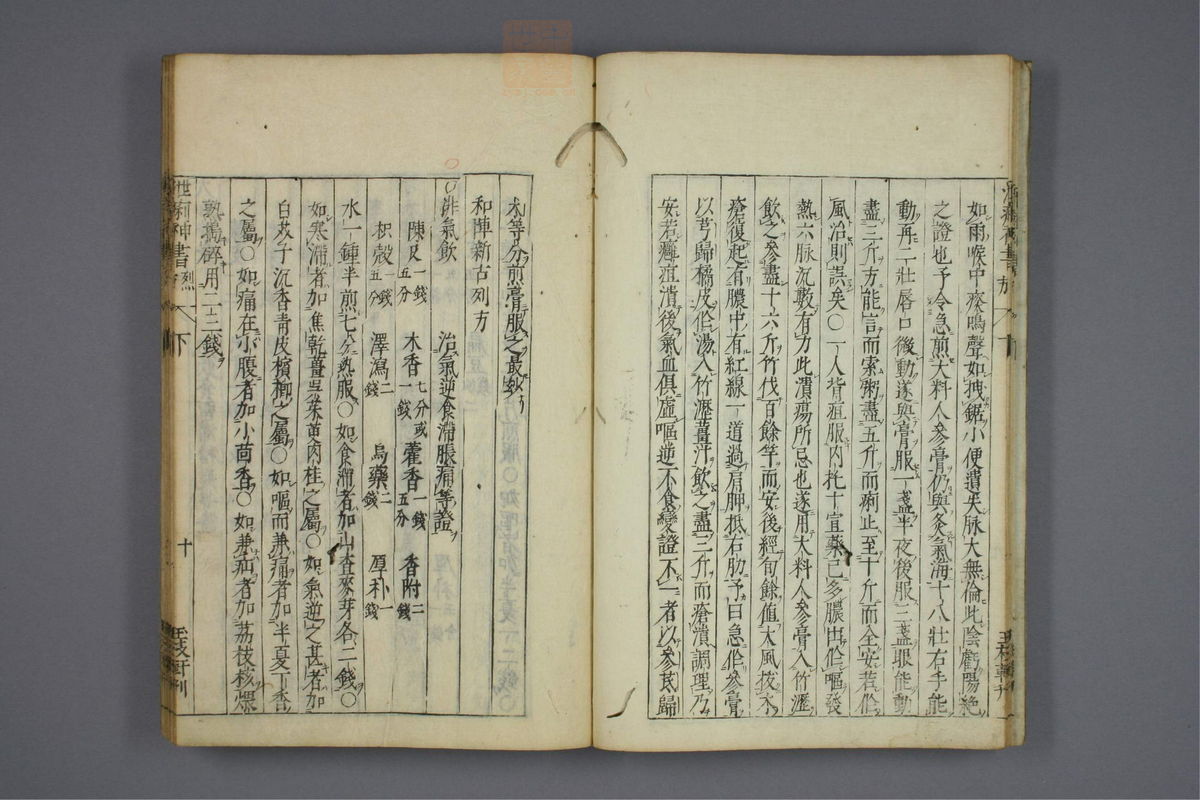 如雨喉中痰鳴聲如拽鋸小便遺失脉大無倫此陰虧陽絶
之證也予令急煎大料人參膏仍與灸氣海十八壯右手能
動再二壯唇口微動遂與膏服一盞半夜後服三盞眼能動
盡三斤方能言而索粥盡五斤而痢止至十斤而全安若作
風治則誤矣○一人背疽服内托十宣藥已多膿出作嘔發
熱六脉沉數有力此潰瘍所忌也遂用大料人參膏入竹瀝
飲之參盡一十六斤竹伐百餘竿而安後經旬餘值大風拔木
瘡復起有膿中有紅線一道過肩胛抵右肋予曰急作參膏
以芎歸橘皮作湯入竹瀝薑汁飲之盡三斤而瘡潰調理乃
安若癰疽潰後氣血俱虛嘔逆不食變證不一者以參芪歸
朮等分煎膏服之最妙
和陣新古列方
排氣飲 治氣逆食滯脹痛等證
陳皮一錢五分 木香七分或一錢 藿香一錢五分 香附二錢
枳殼一錢五分 澤瀉二錢 烏藥二錢 厚朴一錢
水一鍾半煎七分熱服○如食滯者加山査麥芽各二錢○
如寒滯者加焦乾薑吳茱萸肉桂之屬○如氣逆之甚者加
白芥子沉香青皮檳榔之屬○如嘔而兼痛者加半夏丁香
之屬○如痛在小腹者加小茴香○如兼疝者加荔枝核煨
熟搗碎用二三錢
下
十